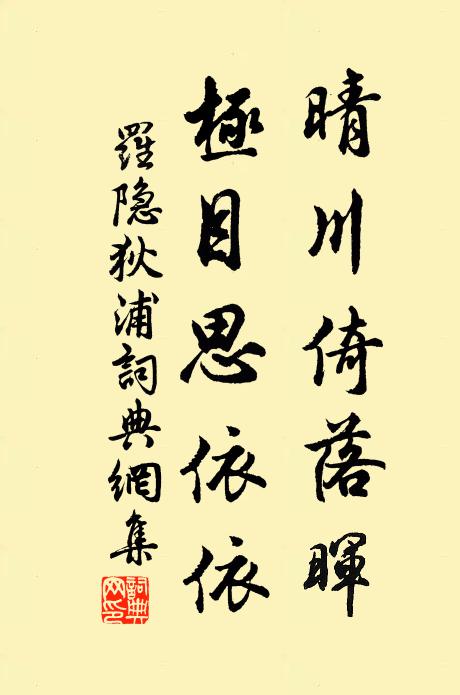 晴川倚落暉
極目思依依
羅隐狄浦詞典網集
詞典網印